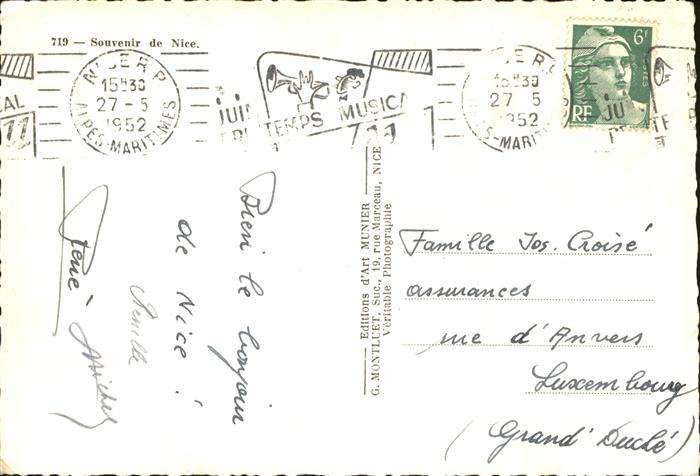 719 — Souvenir de Nice.
NICE R.P.
15H30
27-5
1952
ALPES-MARITIMES
JUIN
PRINTEMPS MUSICAL
NICE R.P.
15H30
27 5
1952
ALPES-MARITIMES
6F
RF
JU
Bien le bonjour
de Nice !
René - Michel
Editions d'Art MUNIER
G. MONTLUET, Suc., 19, rue Marceau, NICE
Véritable Photographie
Famille Jos. Croisé
assurances
rue d'Anvers
Luxembourg
(Grand' Duché)